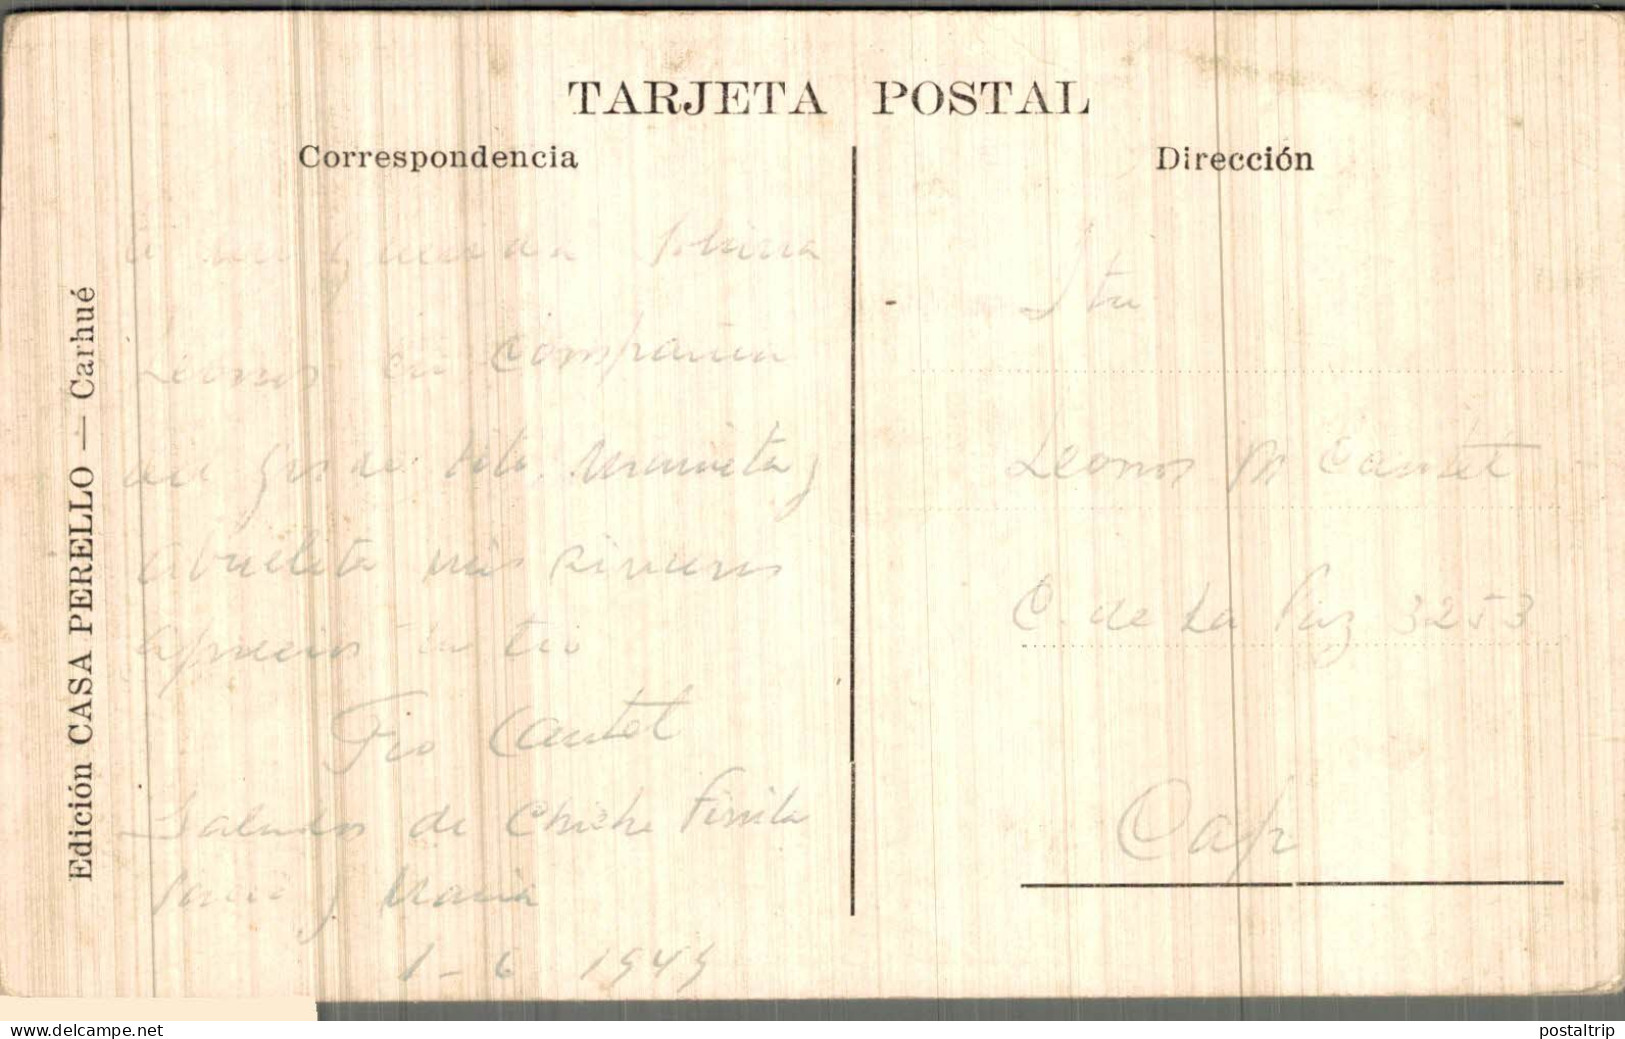 TARJETA POSTAL
Correspondencia
Dirección
Edición CASA PERELLO — Carhué
a mi querida sobrina
Leonor en compañia
de tito Marieta y
Abuelita mis sinceros
aprecios tu tio
Fco Cautet
Saludos de Chiche
y Maria
1-6 1949
Sta
Leonor M Cautet
C. de La Paz 3253
Cap
www.delcampe.net
postaltrip